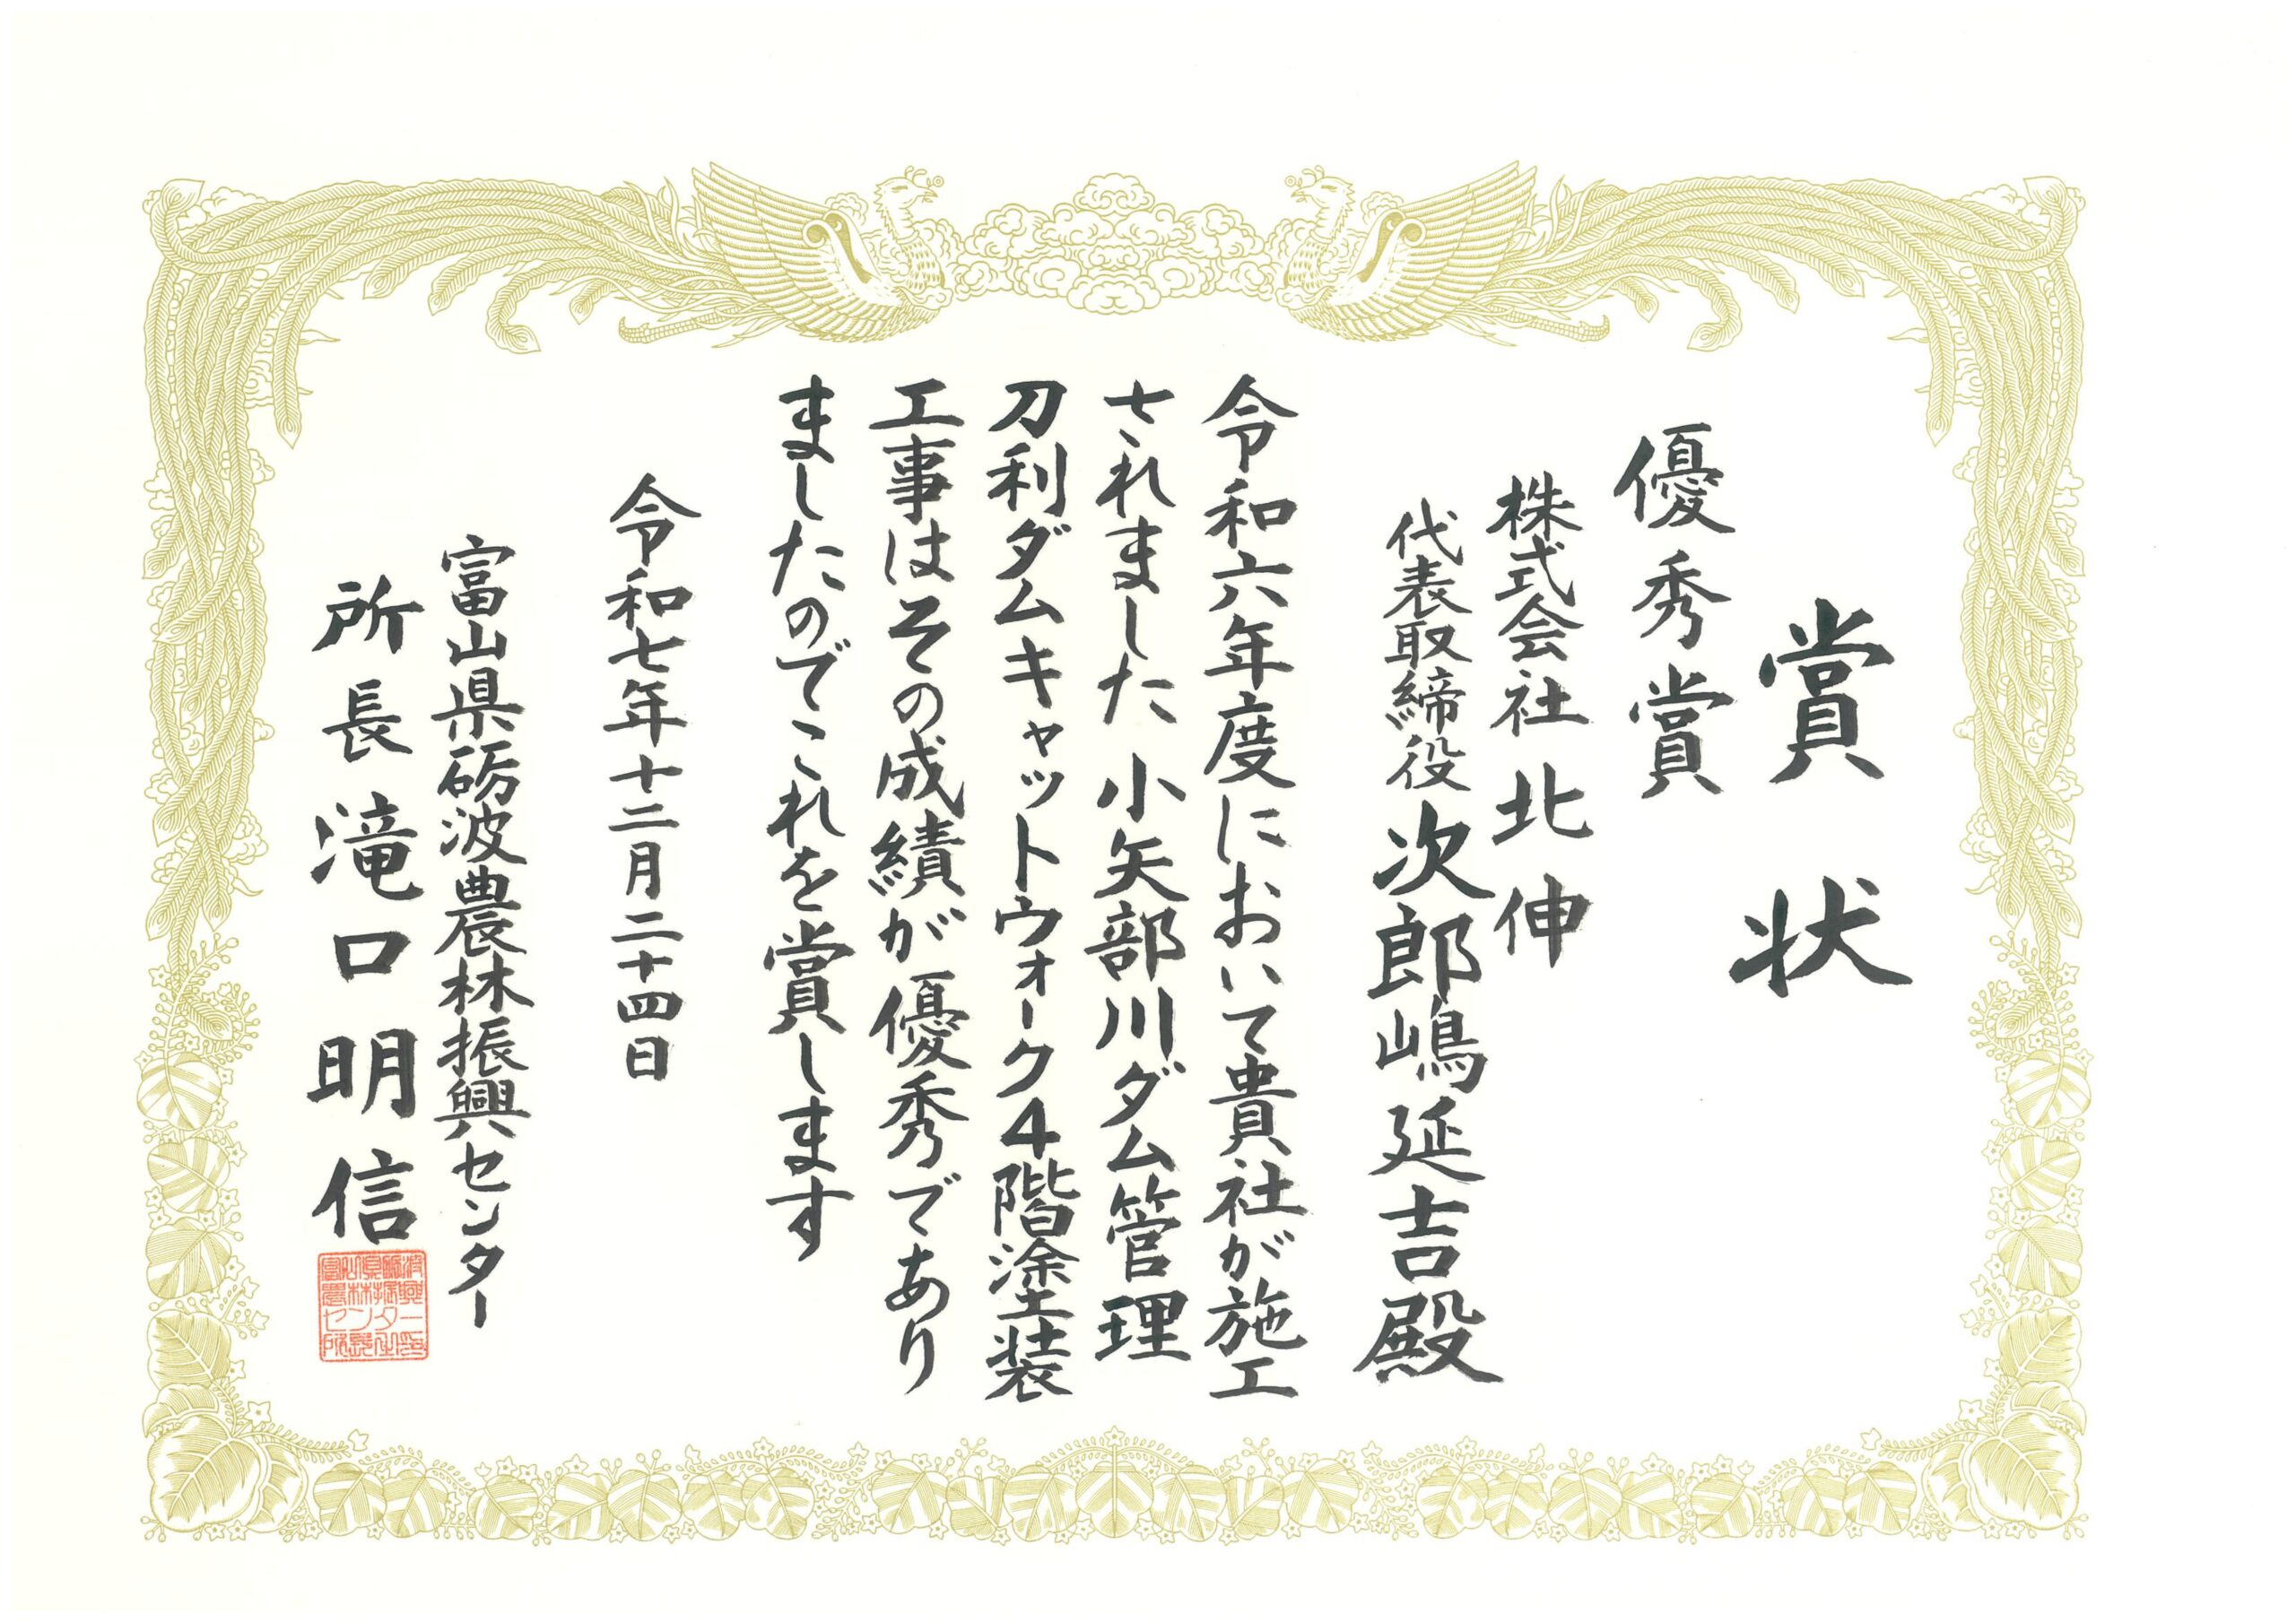 賞状
優秀賞
株式会社 北伸
代表取締役 次郎嶋延吉殿
令和六年度において貴社が施工
されました 小矢部川ダム管理
刀利ダムキャットウォーク4階塗装
工事はその成績が優秀であり
ましたのでこれを賞します
令和七年十二月二十四日
富山県砺波農林振興センター
所長 滝口明信